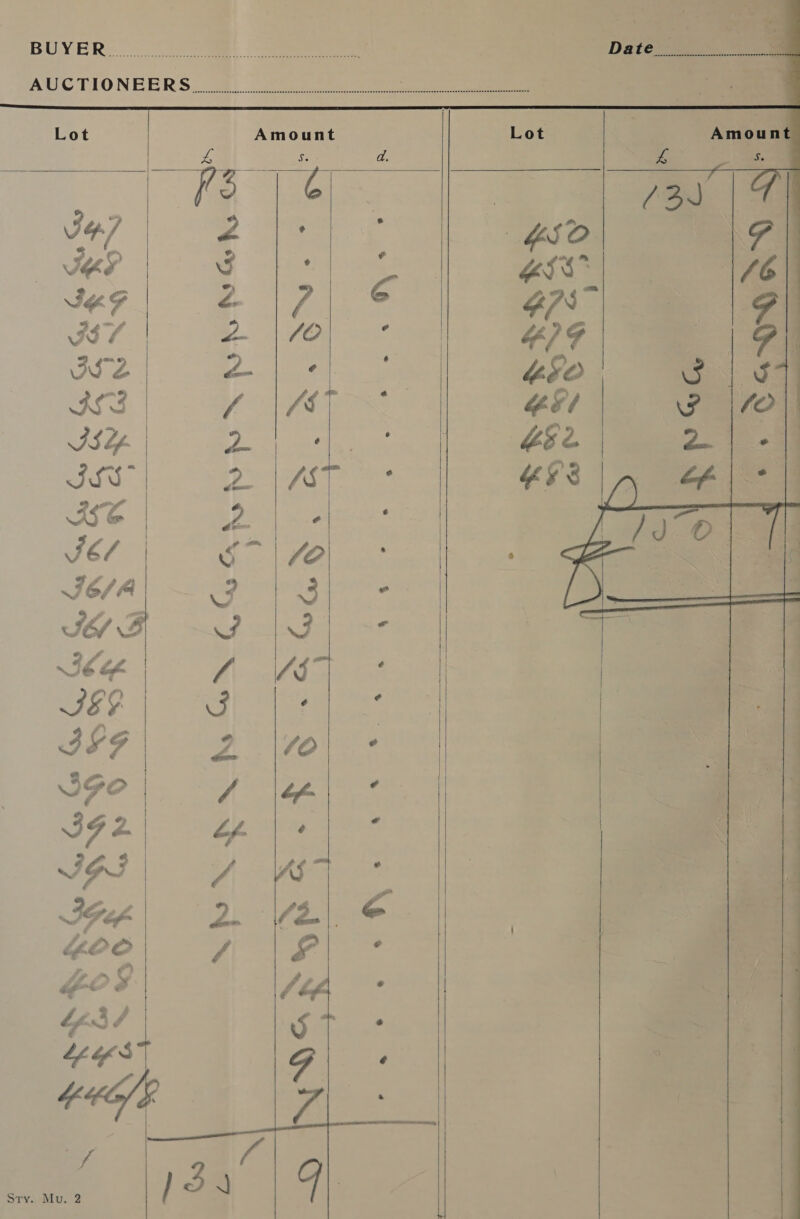 BUYER
Date
AUCTIONEERS
Lot Amount Lot Amount
£ s. d. £ s.
83 6
347 2 . .
348 3 . .
349 2 7 6
351 2 10 .
352 2 . .
353 1 15 .
354 2 . .
355 2 15 .
356 2 . .
361 5 10 .
361A 3 3 .
361B 3 3 .
364 1 15 .
388 3 . .
389 2 10 .
390 1 4 .
392 4 . .
393 1 15 .
394 2 12 6
400 1 8 .
408 14 .
431 5 .
445 9 .
446/8 7 .
135 9
Sty. Mu. 2
135 9
450 9
455 16
475 9
479 9
480 3 5
481 3 10
482 2 .
483 4 .
£150 7